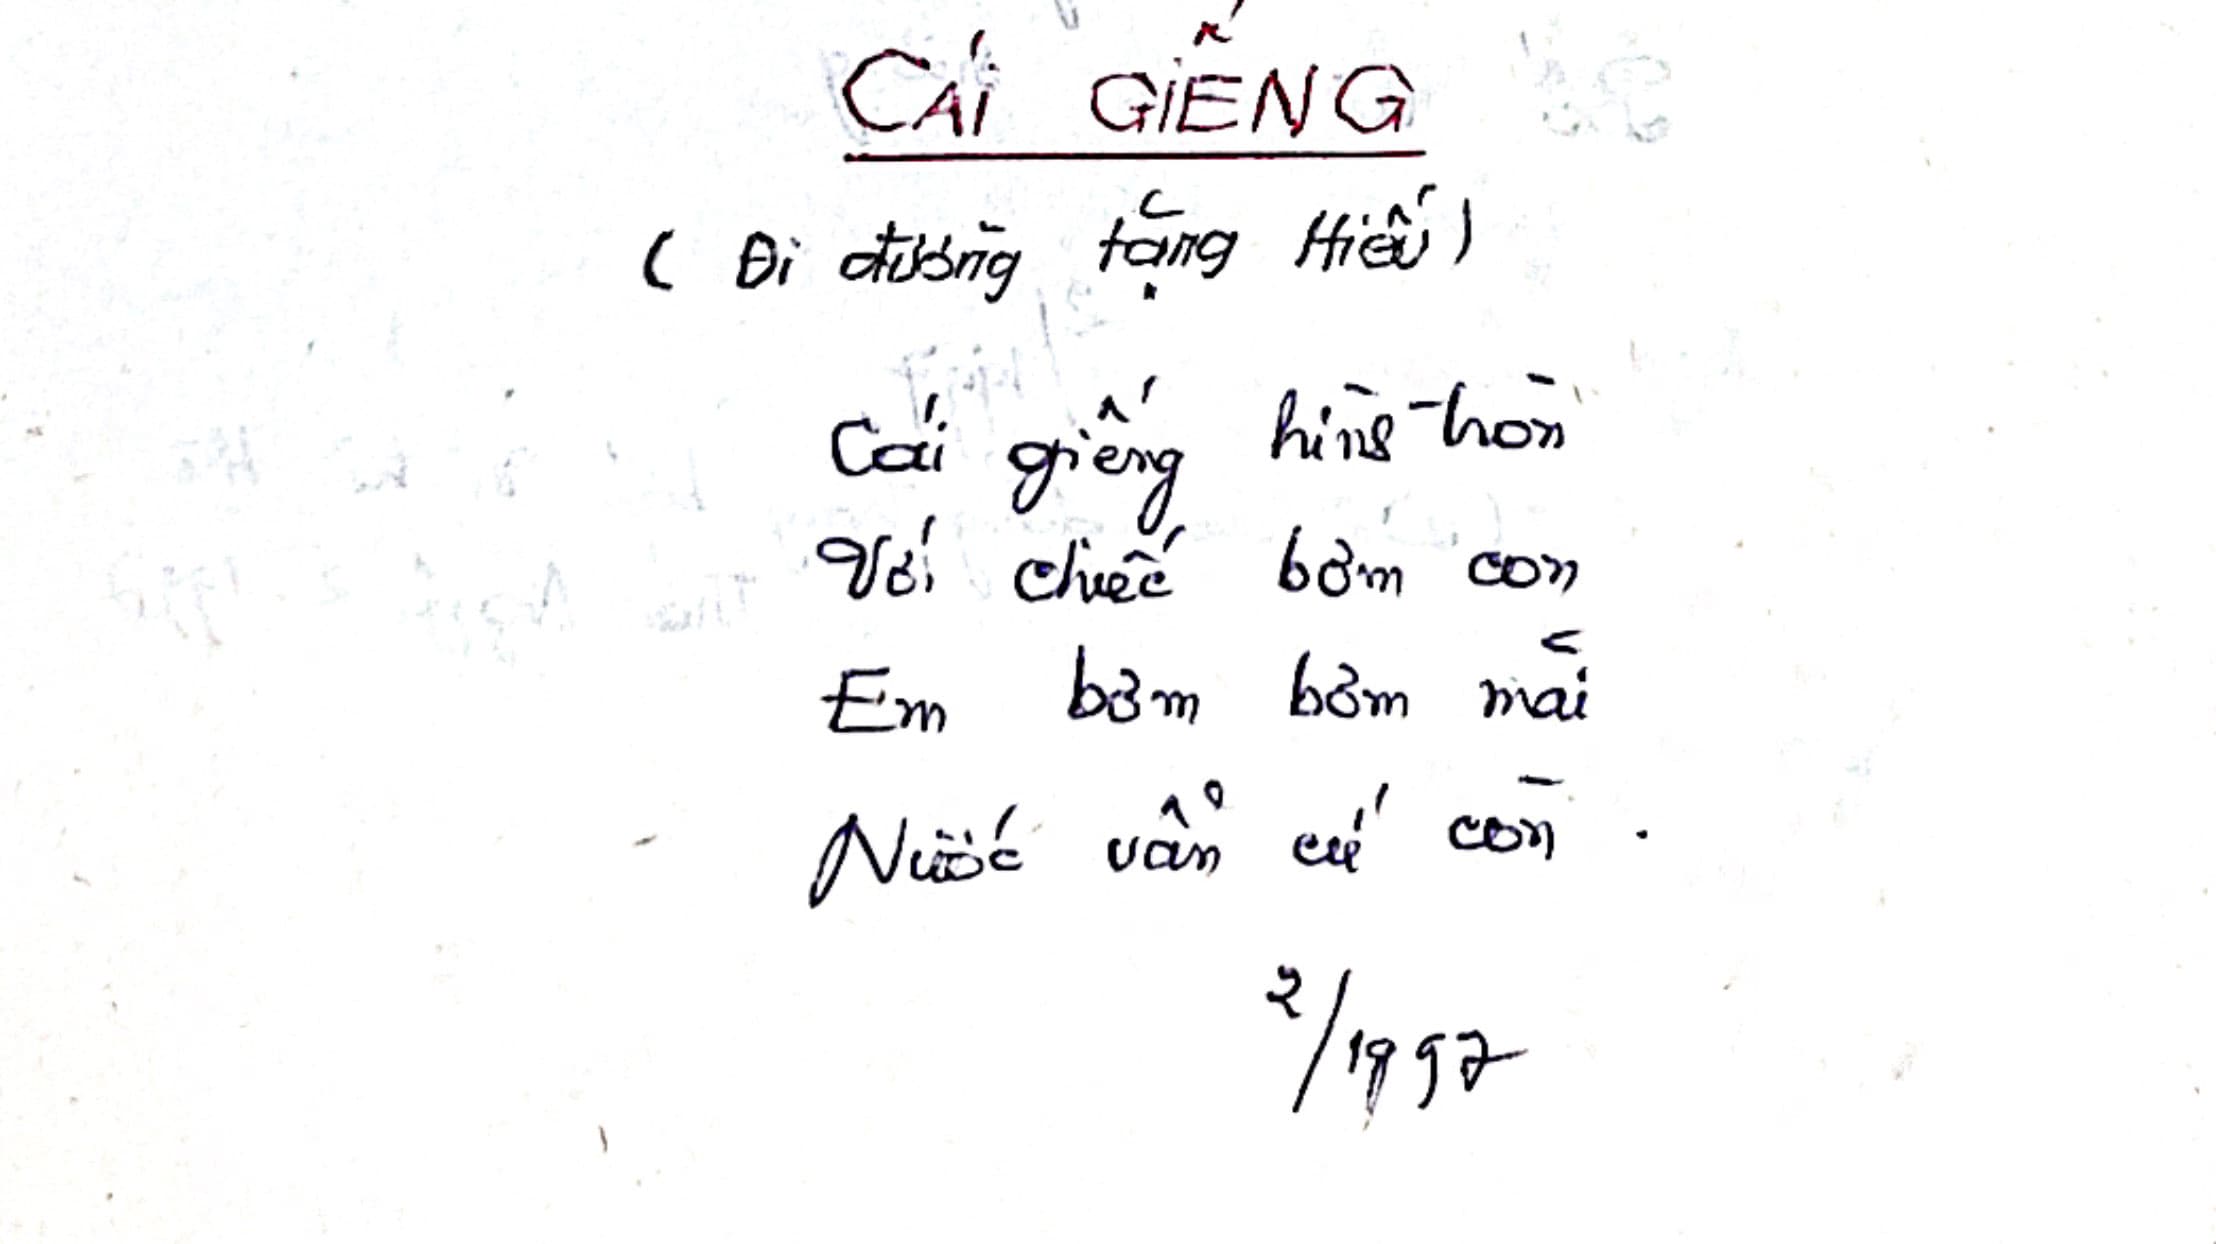 CÁI GIẾNG
(Đi đường tặng Hiếu)
Cái giếng hình tròn
Với chiếc bơm con
Em bơm bơm mãi
Nước vẫn cứ còn.
2/1997